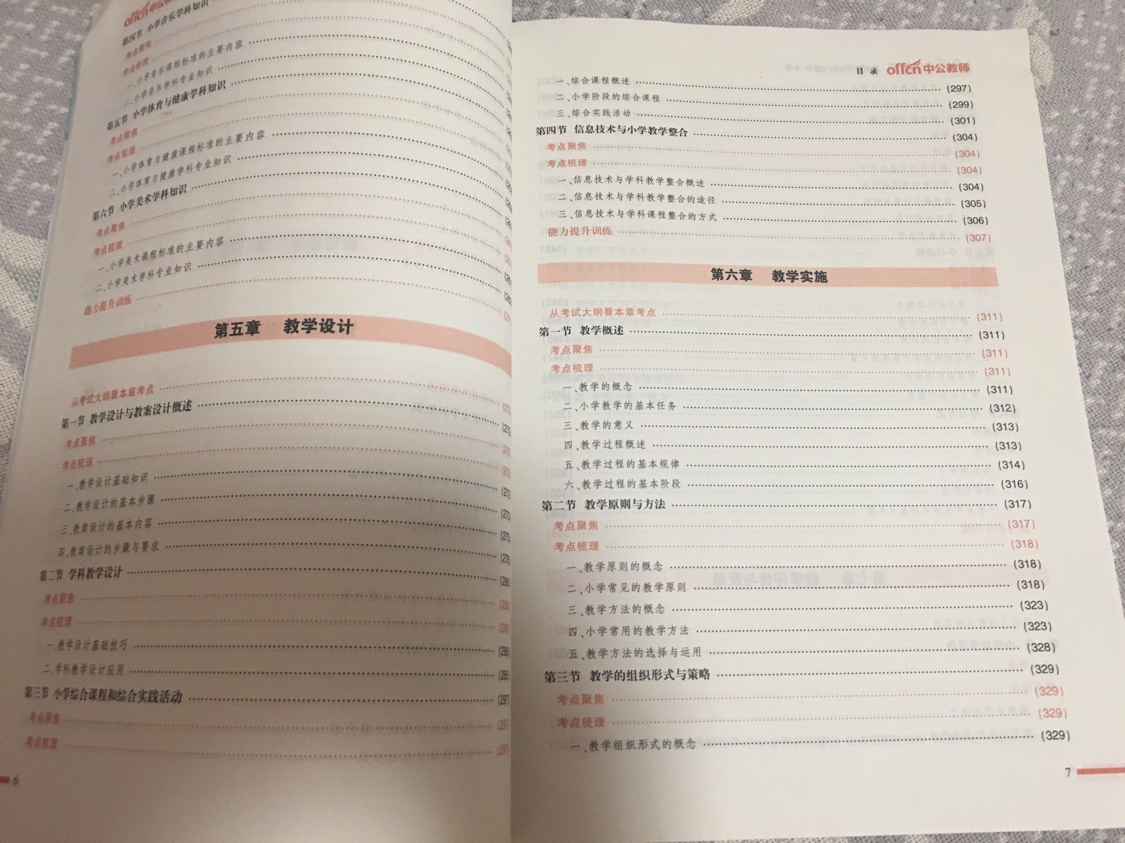 offcn中公
第四节 小学音乐学科知识
考点聚焦
考点梳理
一、小学音乐课程标准的主要内容
二、小学音乐学科专业知识
第五节 小学体育与健康学科知识
考点聚焦
考点梳理
一、小学体育与健康课程标准的主要内容
二、小学体育与健康学科专业知识
第六节 小学美术学科知识
考点聚焦
考点梳理
一、小学美术课程标准的主要内容
二、小学美术学科专业知识
能力提升训练
第五章 教学设计
从考试大纲看本章考点
第一节 教学设计与教案设计概述
考点聚焦
考点梳理
一、教学设计基础知识
二、教学设计的基本步骤
三、教案设计的基本内容
四、教案设计的步骤与要求
第二节 学科教学设计
考点聚焦
考点梳理
一、教学设计基础技巧
二、学科教学设计应用
第三节 小学综合课程和综合实践活动
考点聚焦
考点梳理
6
目 录 offcn中公教师
一、综合课程概述 (297)
二、小学阶段的综合课程 (299)
三、综合实践活动 (301)
第四节 信息技术与小学教学整合 (304)
考点聚焦 (304)
考点梳理 (304)
一、信息技术与学科教学整合概述 (304)
二、信息技术与学科教学整合的途径 (305)
三、信息技术与学科课程整合的方式 (306)
能力提升训练 (307)
第六章 教学实施
从考试大纲看本章考点 (311)
第一节 教学概述 (311)
考点聚焦 (311)
考点梳理 (311)
一、教学的概念 (311)
二、小学教学的基本任务 (312)
三、教学的意义 (313)
四、教学过程概述 (313)
五、教学过程的基本规律 (314)
六、教学过程的基本阶段 (316)
第二节 教学原则与方法 (317)
考点聚焦 (317)
考点梳理 (318)
一、教学原则的概念 (318)
二、小学常见的教学原则 (318)
三、教学方法的概念 (323)
四、小学常用的教学方法 (323)
五、教学方法的选择与运用 (328)
第三节 教学的组织形式与策略 (329)
考点聚焦 (329)
考点梳理 (329)
一、教学组织形式的概念 (329)
7